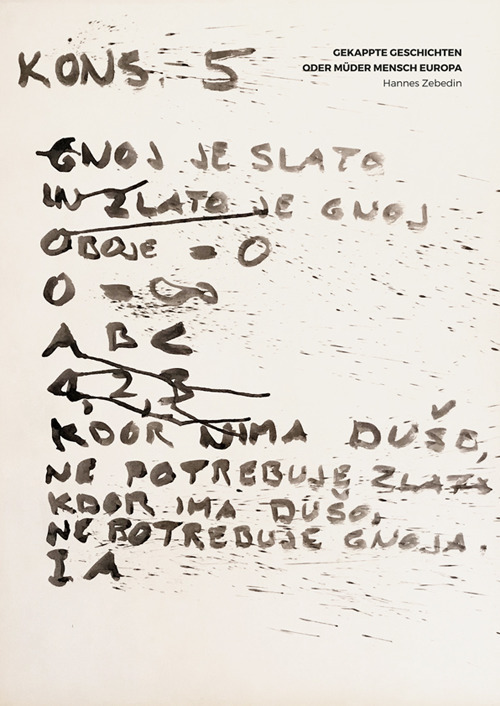 GEKAPPTE GESCHICHTEN
ODER MÜDER MENSCH EUROPA
Hannes Zebedin
KONS. 5
GNOJ JE SLATO
IN ZLATO JE GNOJ
OBOJE = O
O = ∞
A B C
1, 2, 3
KDOR NIMA DUŠO,
NE POTREBUJE ZLATA
KDOR IMA DUŠO,
NE POTREBUJE GNOJA.
I A